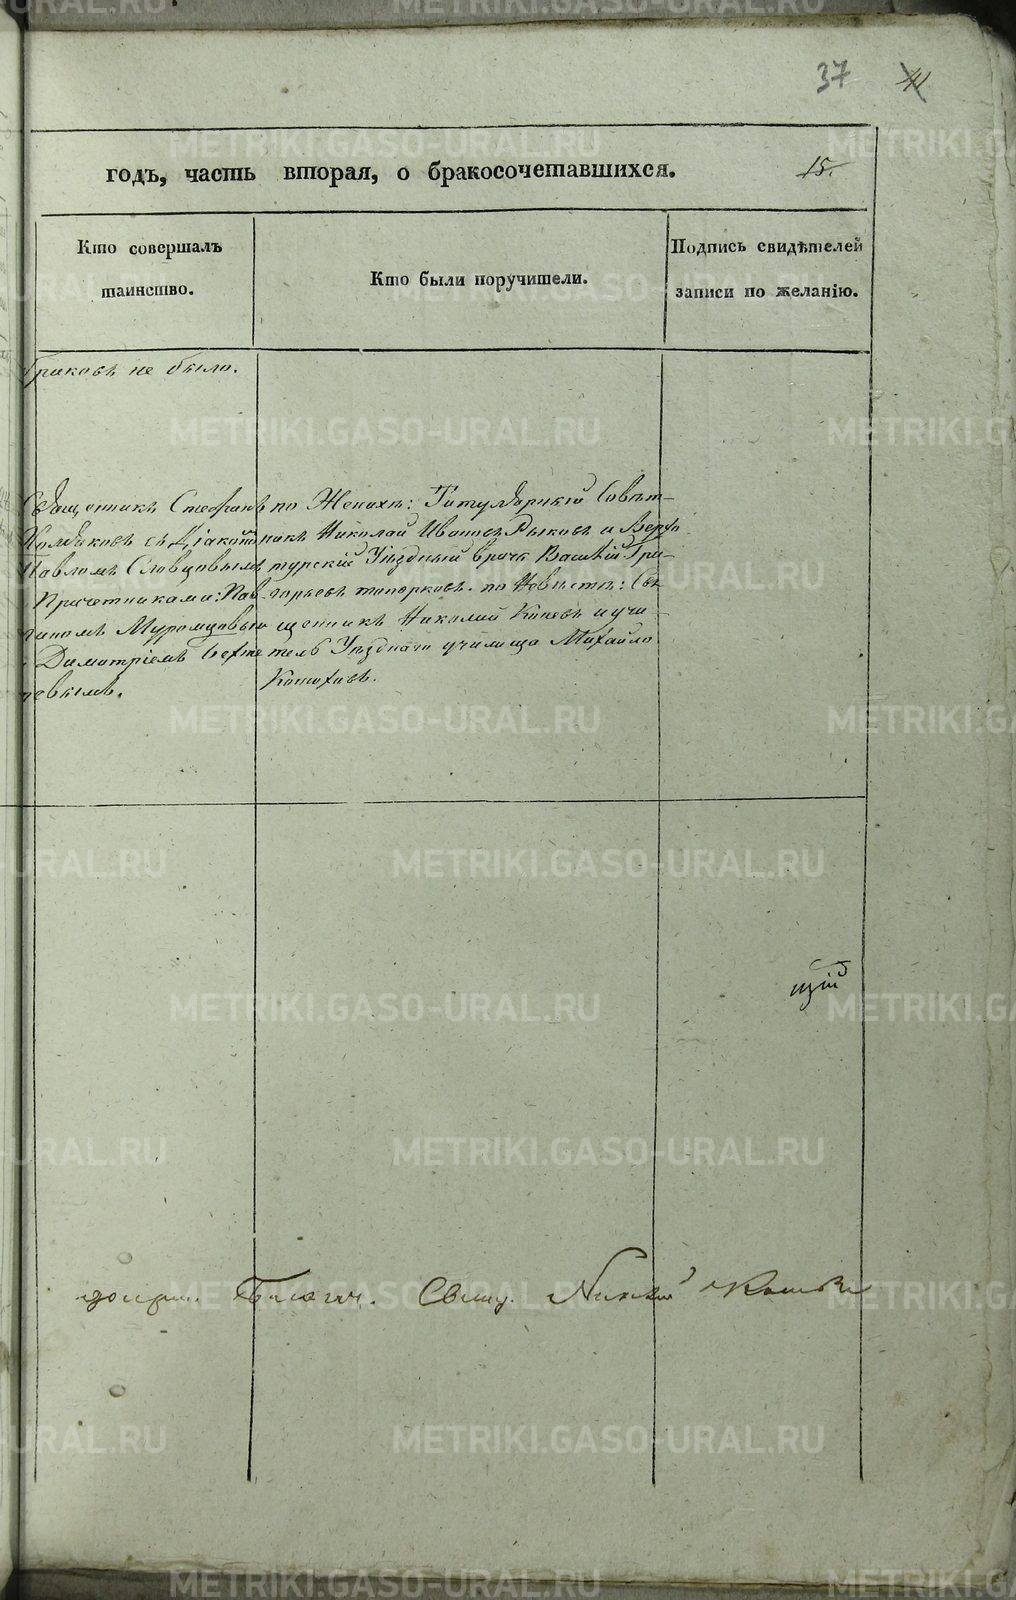 37
15.
годъ, часть вторая, о бракосочетавшихся.
Кто совершалъ
таинство.
Кто были поручители.
Подпись свидѣтелей
записи по желанію.
браковъ не было.
Священникъ Стефанъ
съ Діакономъ
Павломъ Словцовымъ
Причетниками: Пав-
Муромцовымъ
Димитріемъ Бехте-
евымъ.
по Женихѣ: Титулярный Совѣт-
никъ Николай Ивановъ Рыковъ и Верхо-
турскій Уѣздный врачъ Василій Гри-
горьевъ Топорковъ. по Невѣстѣ: Свя-
щенникъ Николай Коневъ и учи-
тель Уѣзднаго училища Михайло
Конюховъ.
цій
Благоч. Свящ. Николай
METRIKI.GASO-URAL.RU